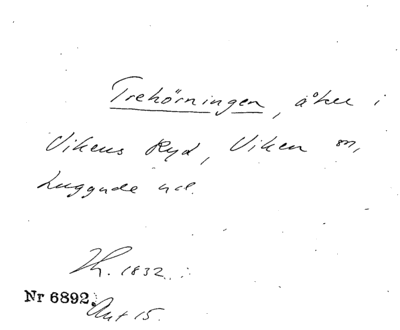 Trehörningen, åker i
Vikens Ryd, Viken sn,
Luggude hd.
Th. 1832.
Nr 6892.
Ant 15.